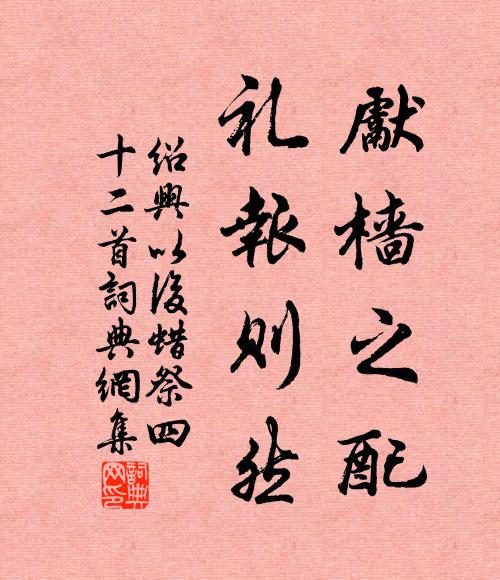 獻樯之配
礼報则然
绍興以後蜡祭四
十二首詞典網集
詞典
网印